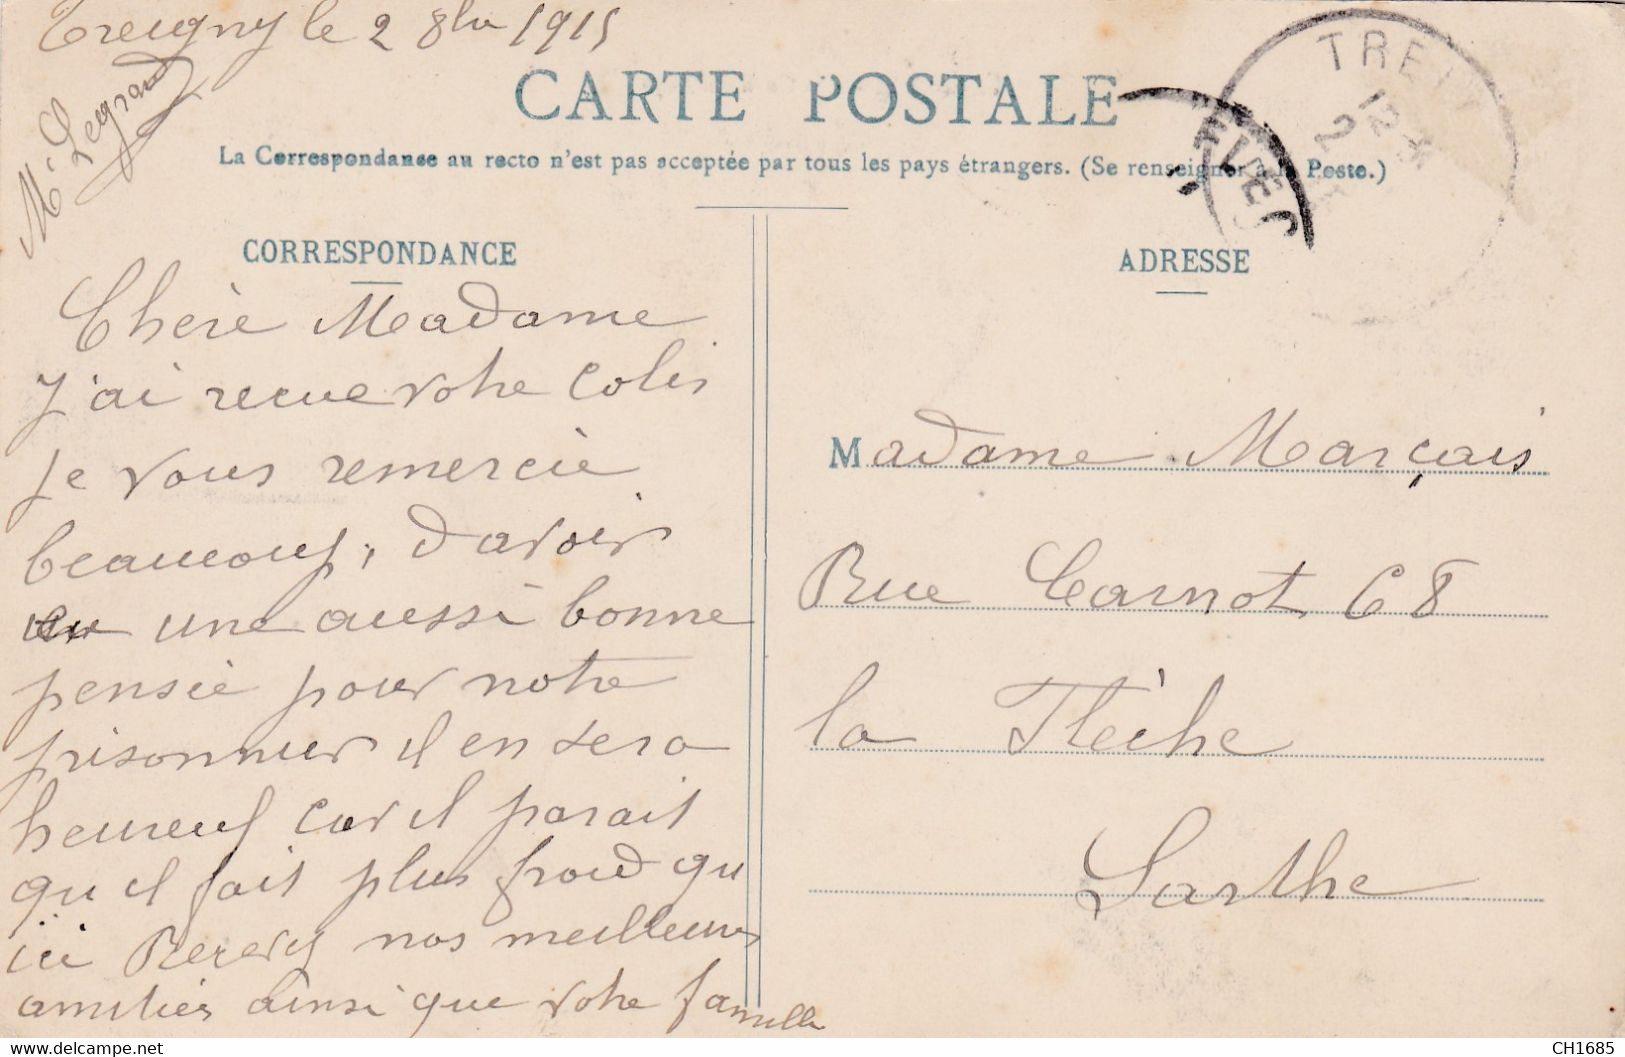 Treigny le 2 8bre 1915
M. Legrand
CARTE POSTALE
La Correspondance au recto n'est pas acceptée par tous les pays étrangers. (Se renseigner à la Poste.)
CORRESPONDANCE
Chère Madame
J'ai recue votre Colis
je vous remercie
beaucoup, d'avoir
eu une aussi bonne
pensée pour notre
prisonnier il en sera
heureux car il parait
qu il fait plus froid qu
ici Recevez nos meilleures
amitiés ainsi que votre famille
ADRESSE
TREI
12
2
Madame Marçais
Rue Carnot 68
la Flèche
Sarthe
https://www.delcampe.net
CH1685